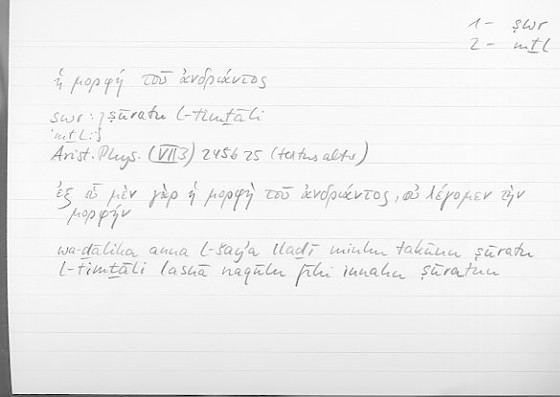 1 - ṣwr
2 - mṯl
ἡ μορφή τοῦ ἀνδριάντος
ṣwr: ṣūratu l-timṯāli
mṯl:
Arist. Phys. (VII 3) 245b 25 (textus alter)
ἐξ οὗ μὲν γὰρ ἡ μορφὴ τοῦ ἀνδριάντος, οὐ λέγομεν τὴν
μορφήν
wa-ḏālika anna l-šayʾa llaḏī minhu takūnu ṣūratu
l-timṯāli lasnā naqūlu fīhi innahu ṣūratun